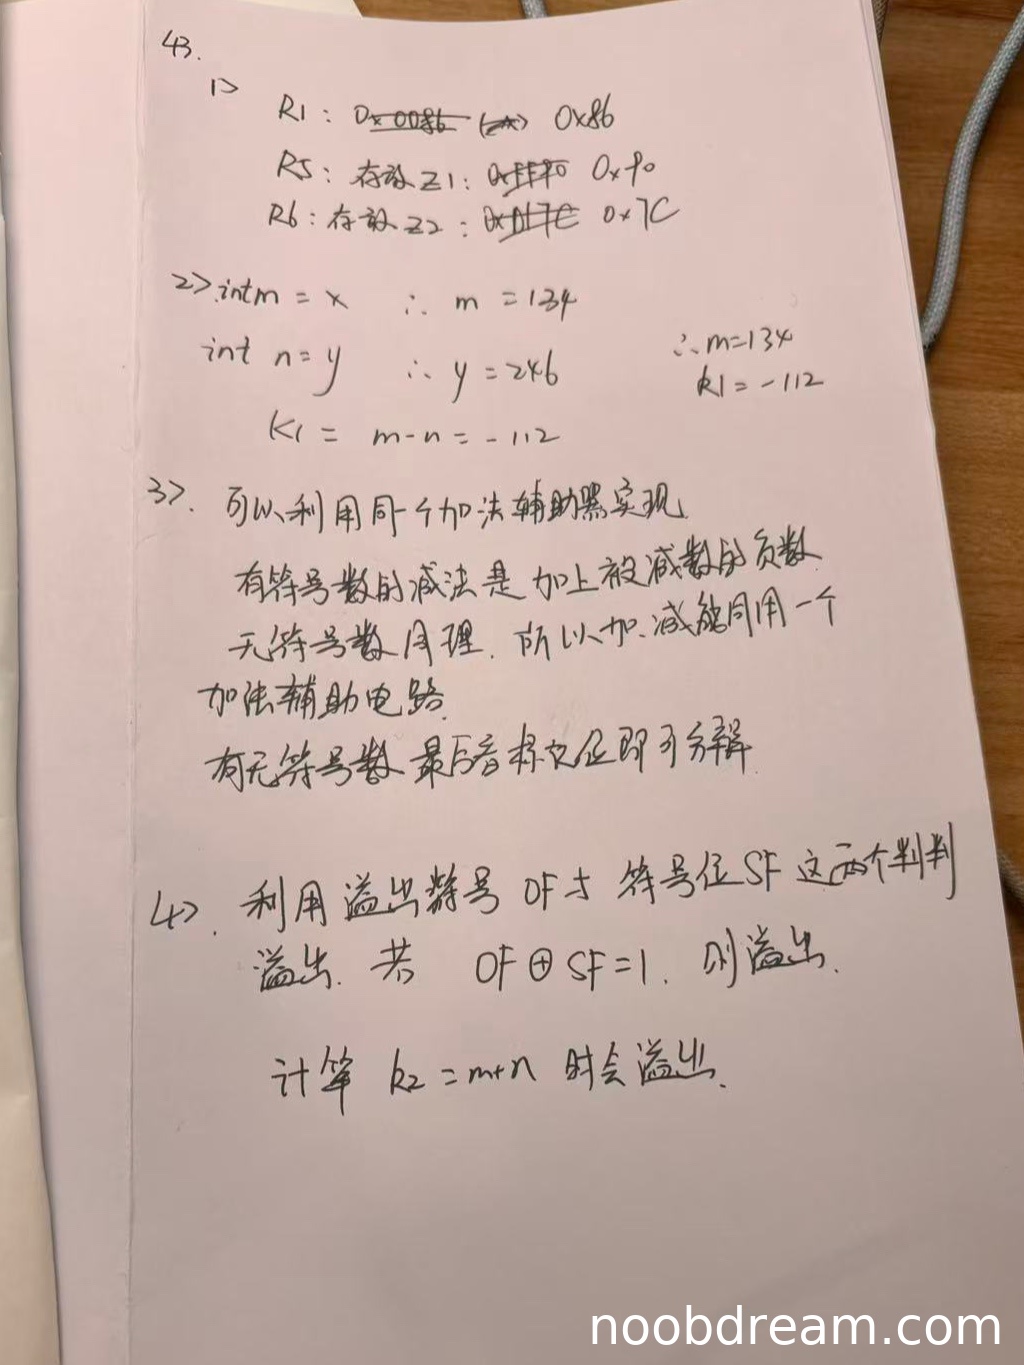 43.
1>
R1: 0x0086 (x) 0x86
R5: 存放Z1: 0xFF90 0x90
R6: 存放Z2: 0x017C 0x7C
2>. int m = x ∴ m = 134
int n = y ∴ y = 246
∴ m=134
k1 = -112
K1 = m-n = -112
3>. 可以利用同一个加法辅助器实现
有符号数的减法是加上被减数的负数
无符号数同理. 所以加.减能同用一个
加法辅助电路.
有无符号数最后 位即可分辩.
4>. 利用溢出符号OF与符号位SF这两个判判
溢出. 若 OF⊕SF=1. 则溢出.
计算 k2 = m+n 时会溢出.
noobdream.com